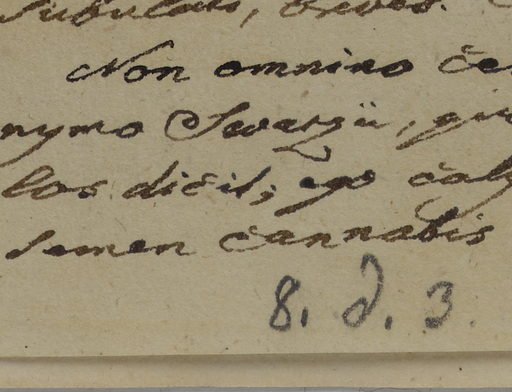 subulati, breves.
Non omnino
nymo Swartzii,
los dicit; ego
semen cannabis
8. d. 3.